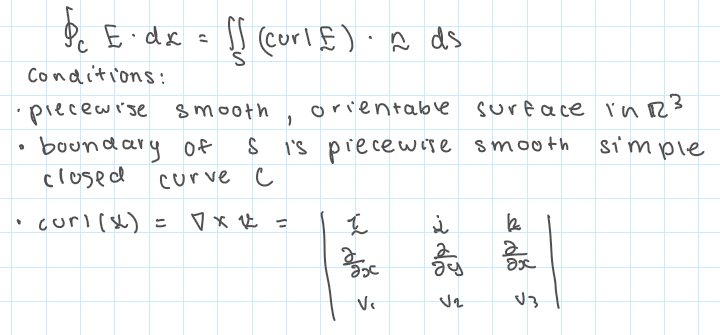 ∮_C F · dx = ∬_S (curl F) · n ds
conditions:
· piecewise smooth, orientable surface in R³
· boundary of S is piecewise smooth simple
closed curve C
· curl(v) = ∇ × v = | i j k |
| ∂/∂x ∂/∂y ∂/∂x |
| v₁ v₂ v₃ |